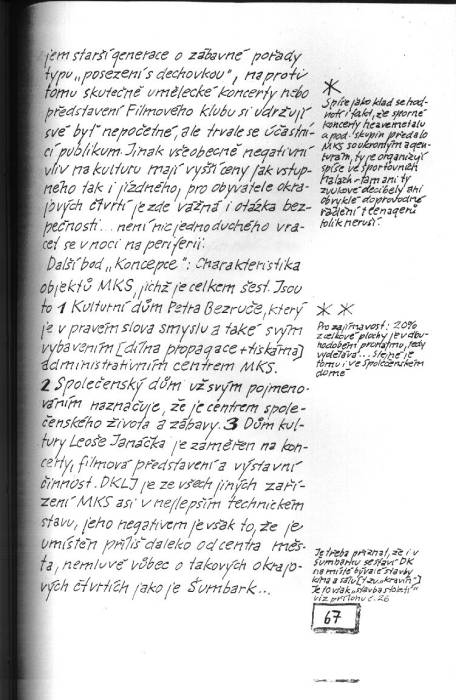 jem starší generace o zábavné pořady
typu „posezení s dechovkou", naproti
tomu skutečně umělecké koncerty nebo
představení Filmového klubu si udržují
své byť nepočetné, ale trvale se účastní-
cí publikum. Jinak všeobecně negativní
vliv na kulturu mají vyšší ceny jak vstup-
ného tak i jízdného, pro obyvatele okra-
jových čtvrtí je zde vážná i otázka bez-
pečnosti... není nic jednoduchého vra-
cet se v noci na periferii.
Další bod „Koncepce": Charakteristika
objektů MKS, jichž je celkem šest. Jsou
to 1 Kulturní dům Petra Bezruče, který
je v pravém slova smyslu a také svým
vybavením [dílna propagace + tiskárna]
administrativním centrem MKS.
2 Společenský dům už svým pojmeno-
váním naznačuje, že je centrem spole-
čenského života a zábavy. 3 Dům kul-
tury Leoše Janáčka je zaměřen na kon-
certy, filmová představení a výstavní
činnost. DKLJ je ze všech jiných zaří-
zení MKS asi v nejlepším technickém
stavu, jeho negativem je však to, že je
umístěn příliš daleko od centra měs-
ta, nemluvě vůbec o takových okrajo-
vých čtvrtích jako je Šumbark...
*
Spíše jako klad se hod-
notí fakt, že sporné
koncerty heavemetalu
a pod. skupin předalo
MKS soukromým agen-
turám, ty je organizují
spíše ve sportovních
halách - tam ani ty
zvukové decibely ani
obvyklé doprovodné
řádění teenagerů
tolik neruší.
* *
Pro zajímavost: 20%
z celkové plochy je v dlou-
hodobém pronájmu, tedy
vydělává... stejné je
tomu i ve Společenském
domě
Je třeba přiznat, že i v
Šumbarku se staví DK
na místě bývalé stavby
kina a sálu [tzv. „kravín"]
Je to však „stavba století"
viz přílohu č. 26
67